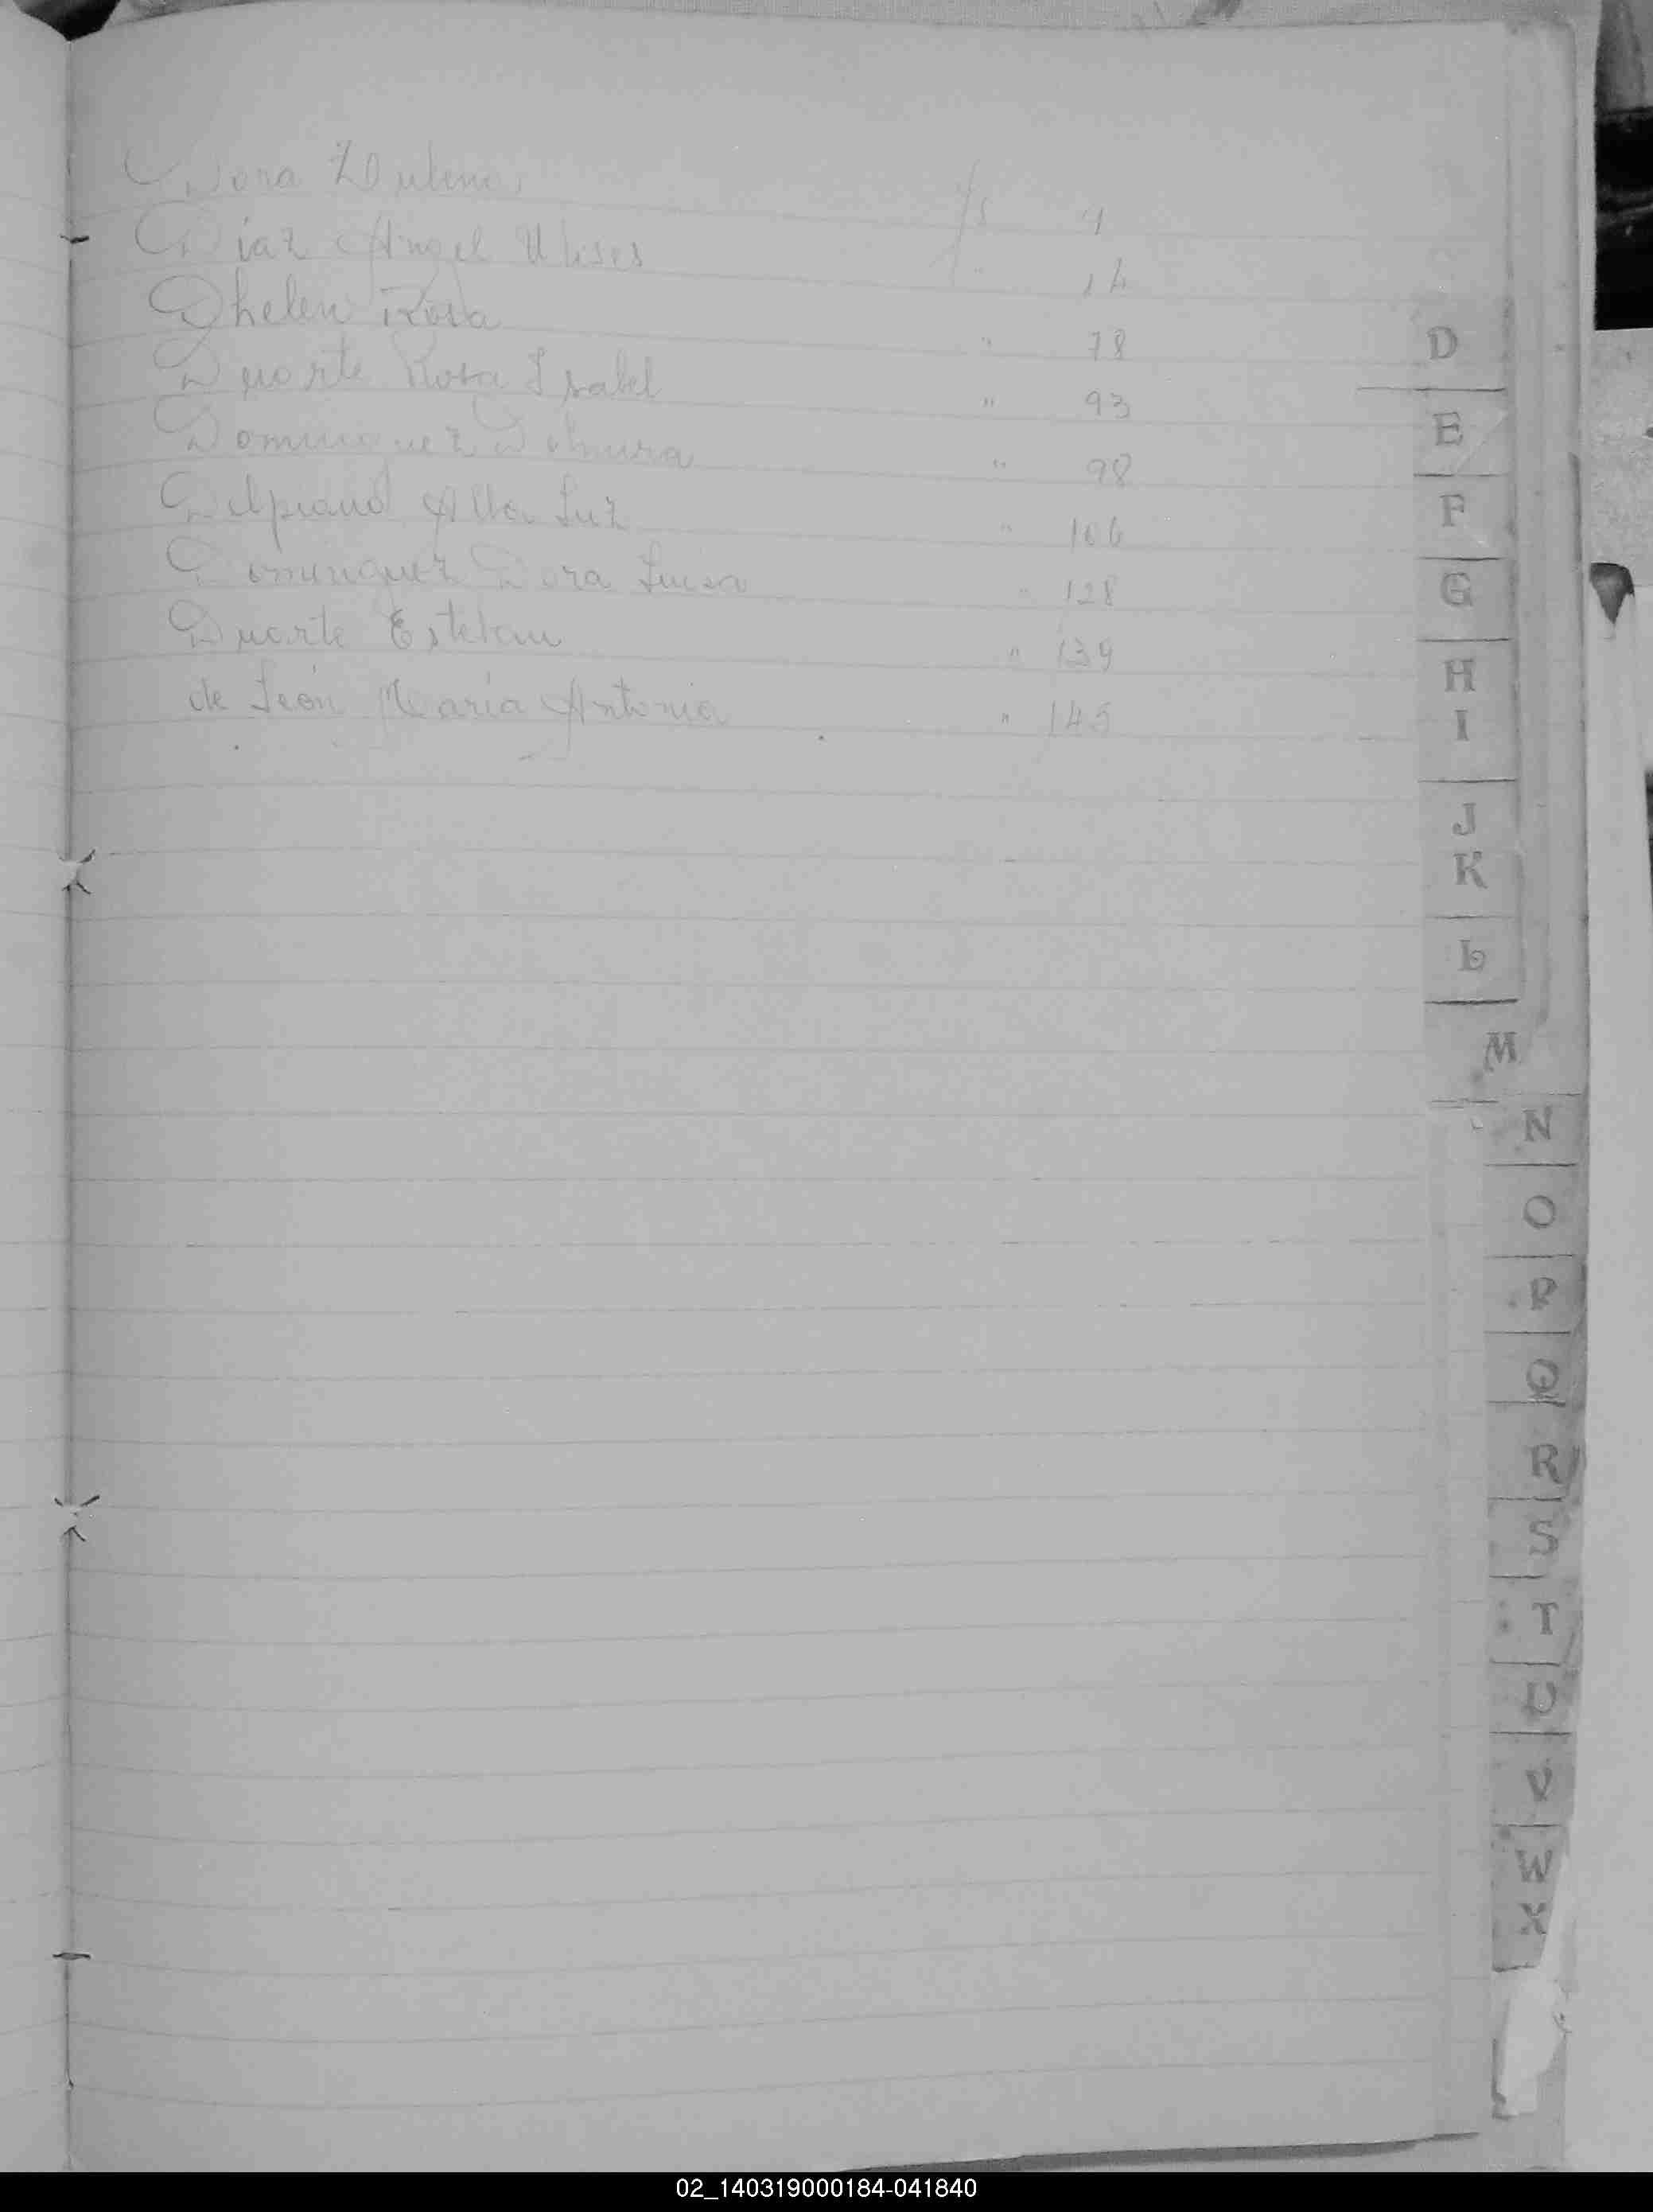 Dora
Díaz Angel Ulises
Dhelen Rosa " 78
Duarte Rosa Isabel " 93
Dominguez " 98
Delpiano Alba Luz " 106
Dominguez Dora Luisa " 128
Duarte Esteban " 139
de León María Antonia " 145
D
E
F
G
H
I
J
K
L
M
N
O
P
Q
R
S
T
U
V
W
X
02_140319000184-041840